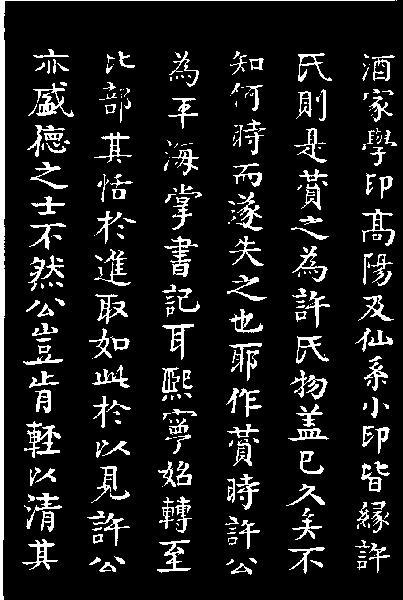 酒家學印高陽及仙系小印皆緣許
氏則是蕒之為許氏物蓋已久矣不
知何時而遂失之也耶作蕒時許公
為平海掌書記耳熙寧始轉至
比部其恬於進取如此於以見許公
亦盛德之士不然公豈肯輕以清其